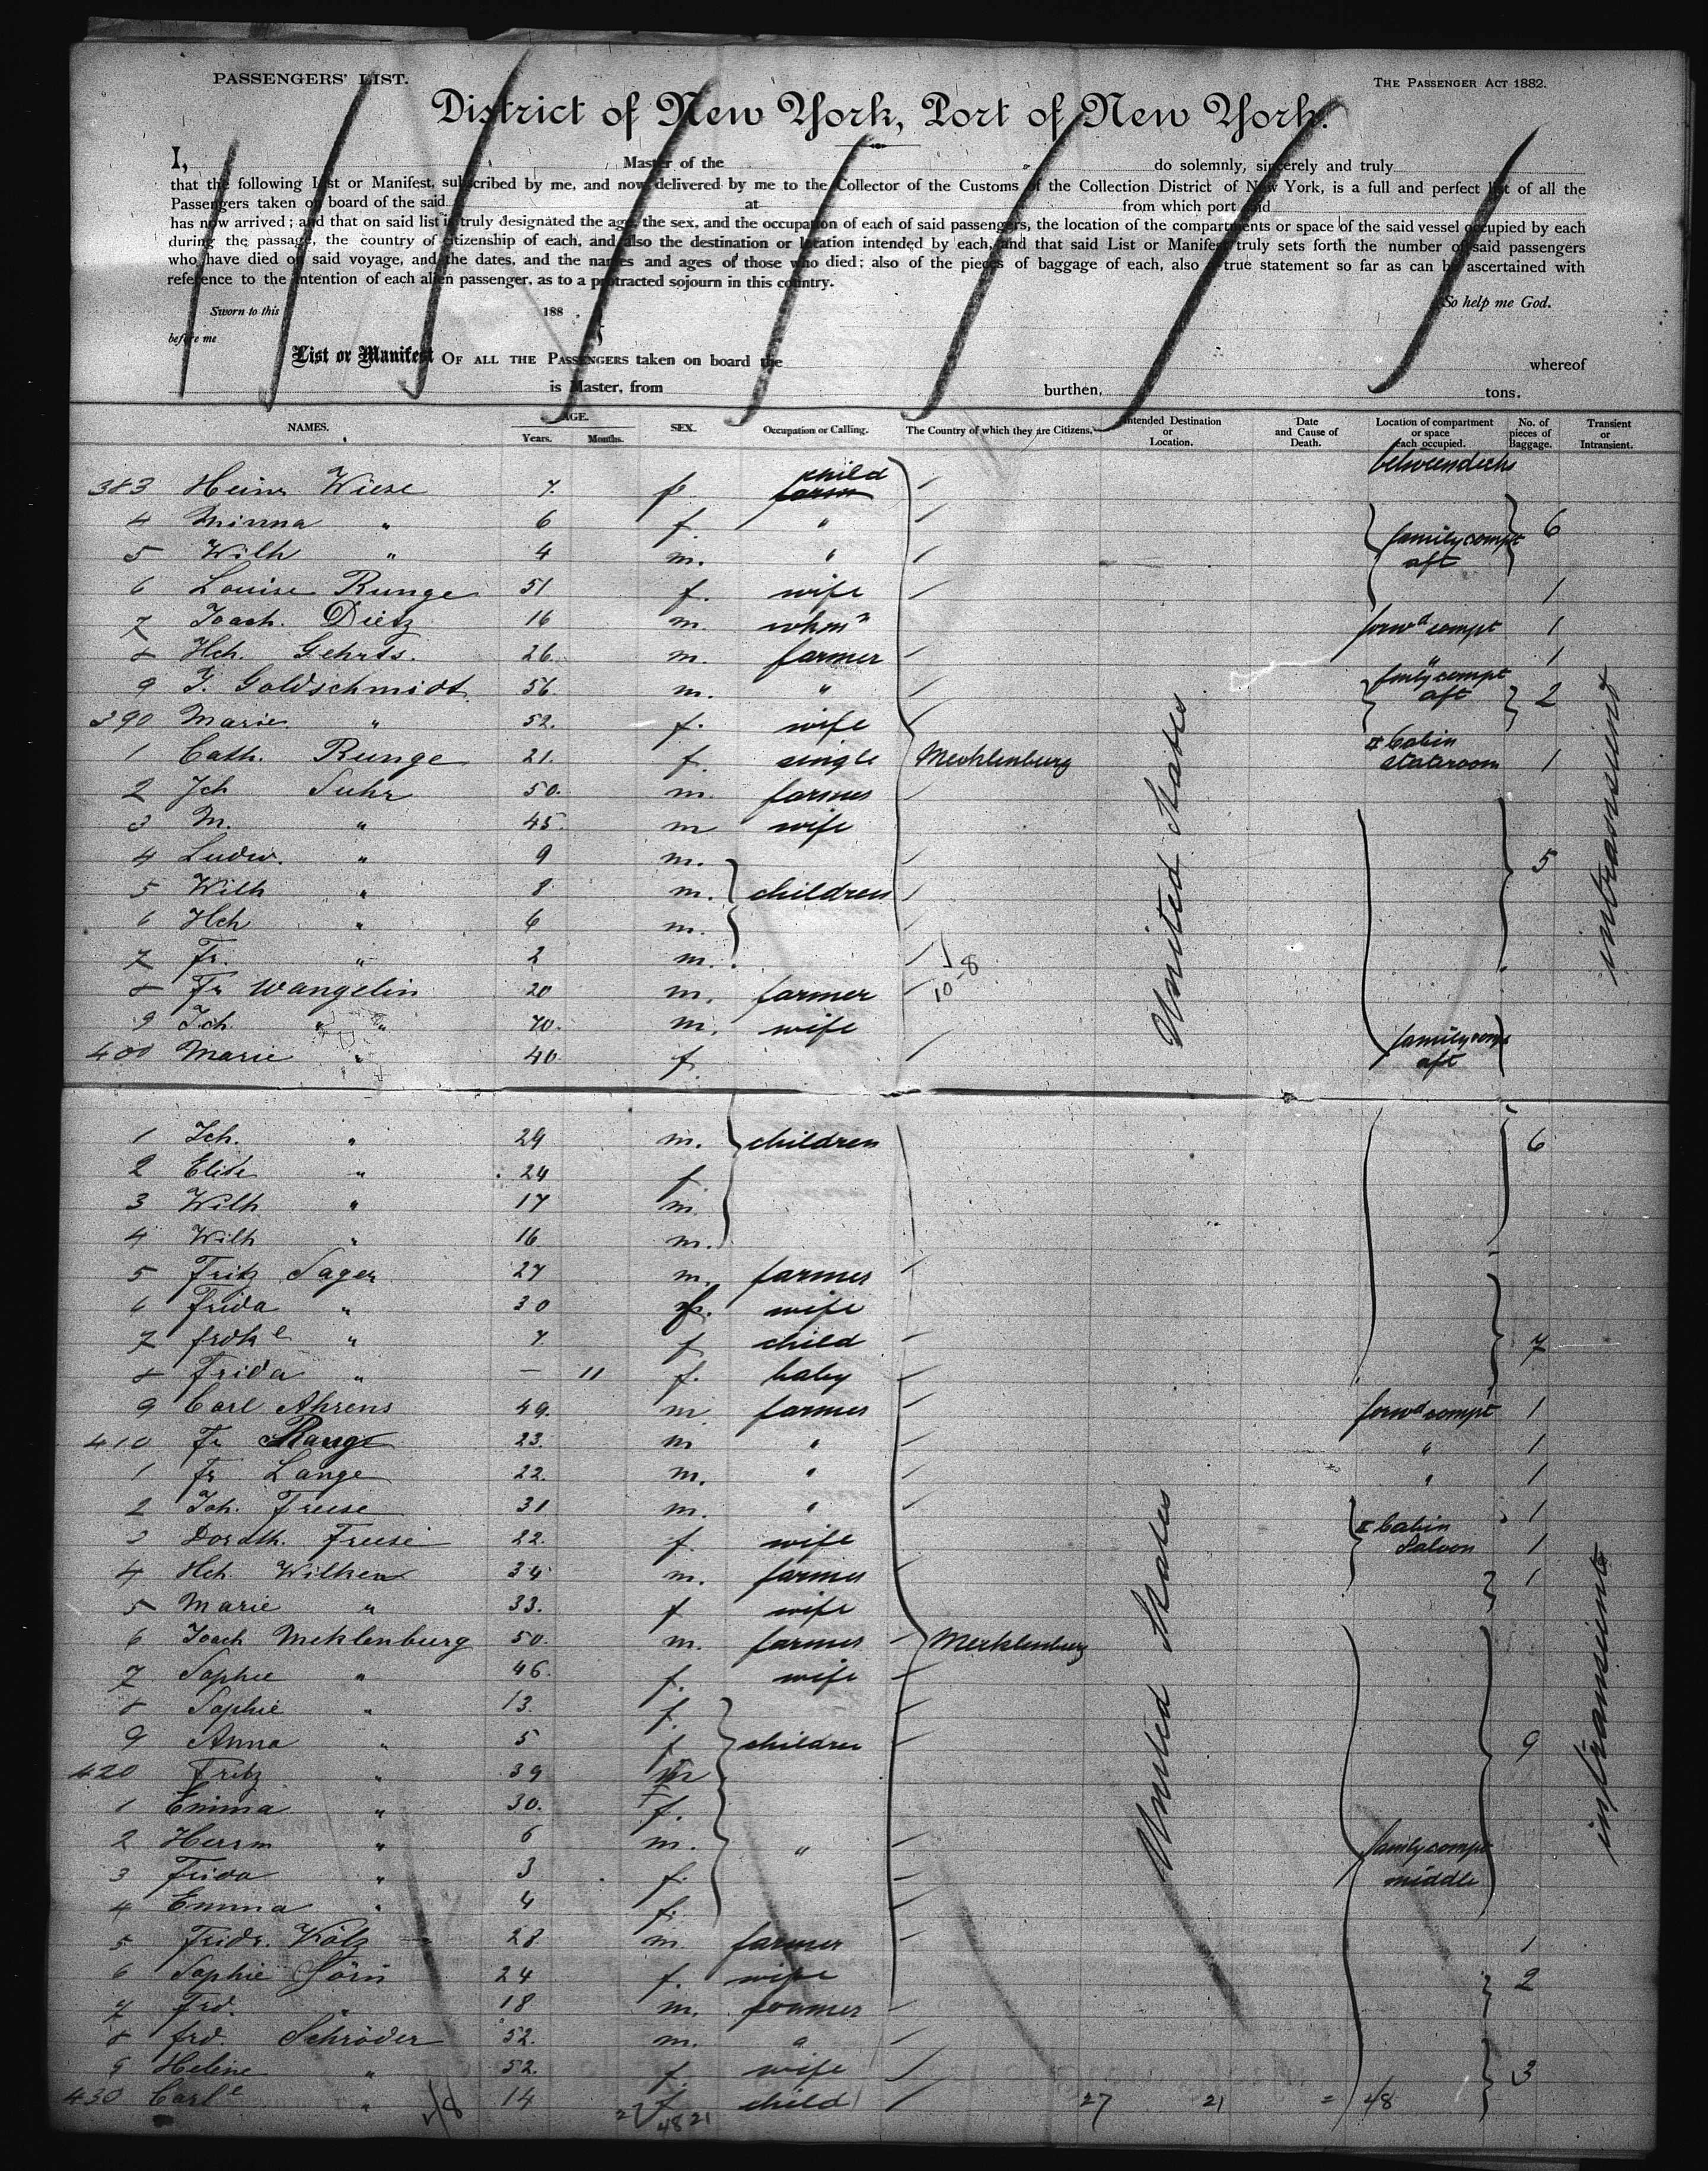 PASSENGERS' LIST.
THE PASSENGER ACT 1882.
District of New York, Port of New York.
I, Master of the do solemnly, sincerely and truly
that the following List or Manifest, subscribed by me, and now delivered by me to the Collector of the Customs of the Collection District of New York, is a full and perfect list of all the
Passengers taken on board of the said at from which port said
has now arrived; and that on said list is truly designated the age, the sex, and the occupation of each of said passengers, the location of the compartments or space of the said vessel occupied by each
during the passage, the country of citizenship of each, and also the destination or location intended by each, and that said List or Manifest truly sets forth the number of said passengers
who have died on said voyage, and the dates, and the names and ages of those who died; also of the pieces of baggage of each, also a true statement so far as can be ascertained with
reference to the intention of each alien passenger, as to a protracted sojourn in this country.
Sworn to this 188 So help me God.
before me
List or Manifest OF ALL THE PASSENGERS taken on board the whereof
is Master, from burthen, tons.
NAMES. AGE. Years. Months. SEX. Occupation or Calling. The Country of which they are Citizens. Intended Destination or Location. Date and Cause of Death. Location of compartment or space each occupied. No. of pieces of Baggage. Transient or Intransient.
betweendecks
383 Heinr Wiese 7. f. child
4 Minna " 6 f. " family compt aft 6
5 Wilh " 4 m. "
6 Louise Runge 51 f. wife 1
7 Joach. Dietz 16 m. forwd compt 1
8 Hch. Gehrts. 26. m. farmer " 1
9 J. Goldschmidt 56. m. " family compt aft 2
390 Marie " 52. f. wife
1 Cath. Runge 21. f. single Mecklenburg II Cabin stateroom 1
2 Jch Suhr 50. m. farmer
3 M. " 45. m wife
4 Ludw. " 9 m.
5 Wilh " 8 m. children 5
6 Hch " 6 m.
7 Fr. " 2 m.
8 Fr Wangelin 20 m. farmer 10-8
9 Jch. " 70. m. wife
400 Marie " 40. f. family comp aft
United States
intransient
1 Jch. " 29 m. children 6
2 Elise " 24 f
3 Wilh " 17 m.
4 Wilh " 16 m.
5 Fritz Sager 27 m. farmer
6 Frida " 30 f. wife
7 frdke " 7. f child 7
8 Frida " — 11 f. baby
9 Carl Ahrens 49. m. farmer forwd compt 1
410 Fr Range 23. m " " 1
1 Fr Lange 22. m. " " 1
2 Joh. Freese 31 m. " II Cabin Saloon 1
3 Doroth. Freese 22. f. wife 1
4 Hch Wilken 34 m. farmer 1
5 Marie " 33. f wife
6 Joach Meklenburg 50. m. farmer Mecklenburg
7 Sophie " 46. f. wife
8 Sophie " 13. f.
9 Anna " 5 f children 9
420 Fritz " 39 m
1 Emma " 30. f.
2 Herrm " 6 m. " family compt middle
3 Frida " 3 f.
4 Emma " 4 f.
5 Fridr. Kölz 28 m. farmer 1
6 Sophie Jörn 24 f. wife 2
7 Frd. " 18 m. farmer
8 frd. Schröder 52. m. "
9 Heline " 52. f. wife 3
430 Carl " 14 f child 27 21 = 48
United States
intransient
48 21